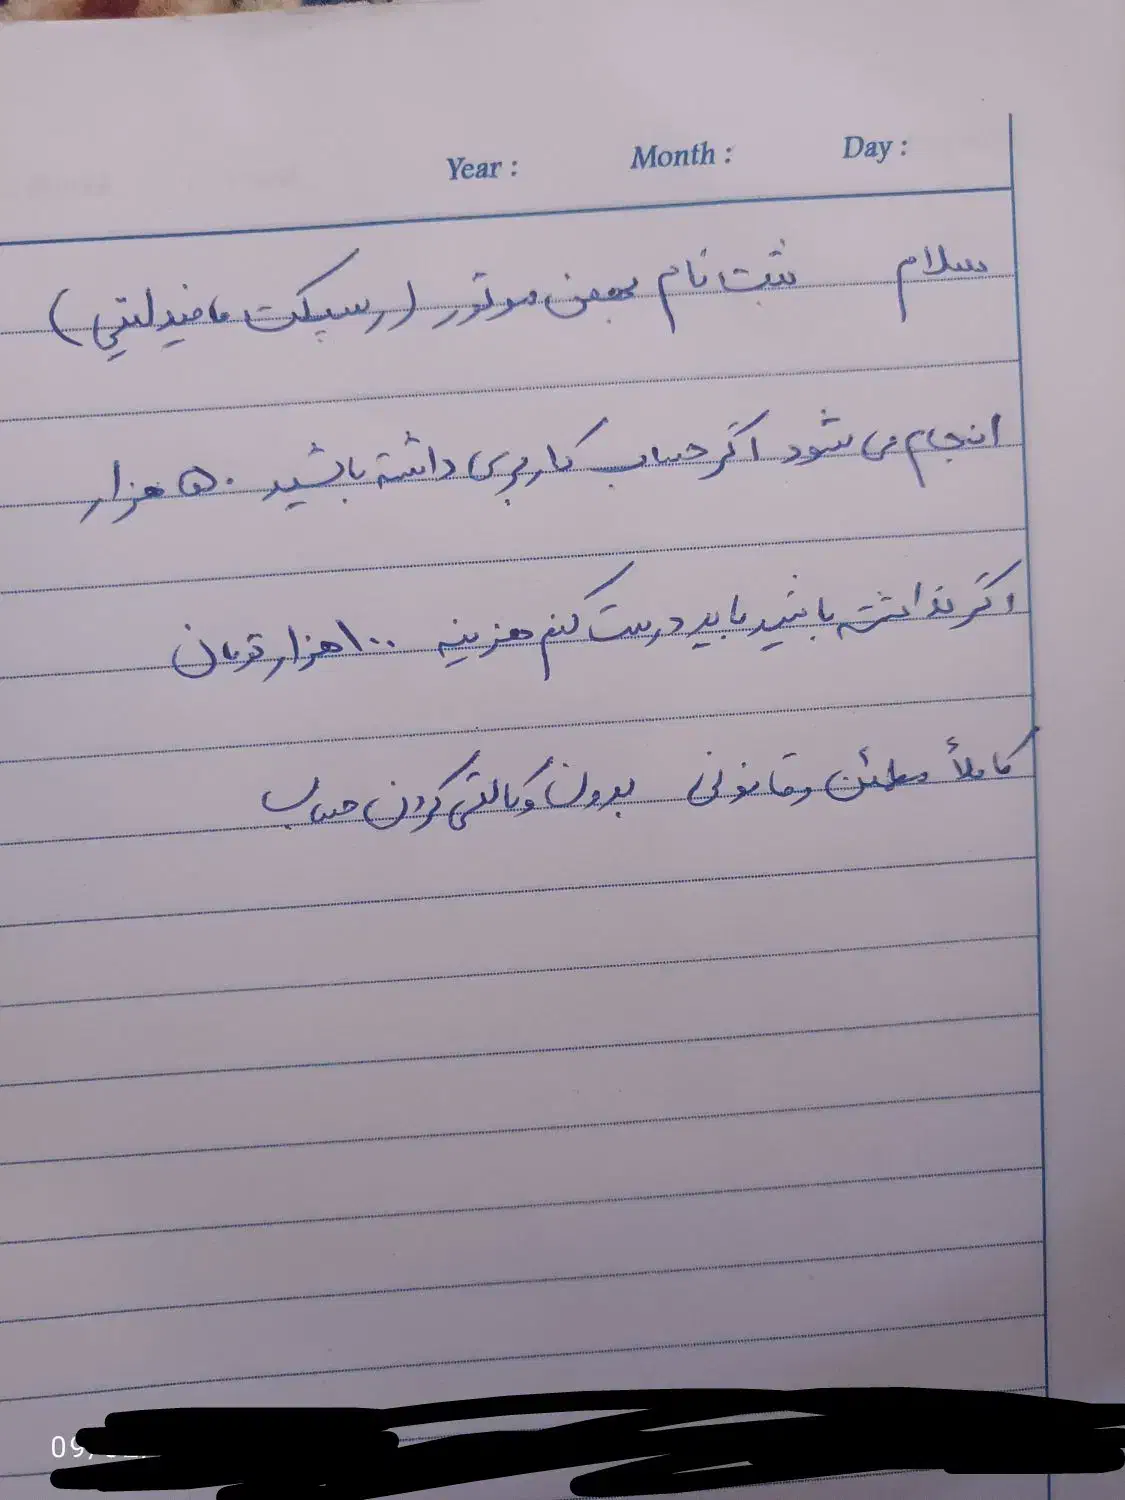 Year : Month : Day :
سلام ثبت نام بهمن موتور (رسپکت ما فیدلیتی)
انجام می شود اگر حساب کاربری داشته باشید ۵۰ هزار
اگر نداشته باشید باید درست کنم هزینه ۱۰۰ هزار تومان
کاملاً مطمئن وقانونی بدون وکالتی کردن حساب